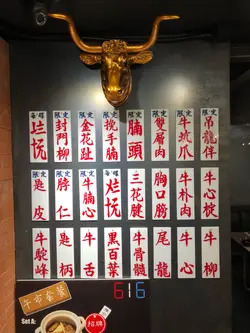 每日
爛扤
限定
封門柳
限定
金花趾
限定
挽手腩
限定
腩頭
限定
雙層肉
限定
牛𦟌爪
限定
吊龍伴
限定
匙皮
限定
脖仁
限定
牛腩心
每日
爛扤
三花腱
胸口膀
牛朴肉
牛心椗
牛駝峰
匙柄
牛舌
黑百葉
牛骨髓
尾龍
牛心
牛柳
616
午市套餐
Set A:
招牌